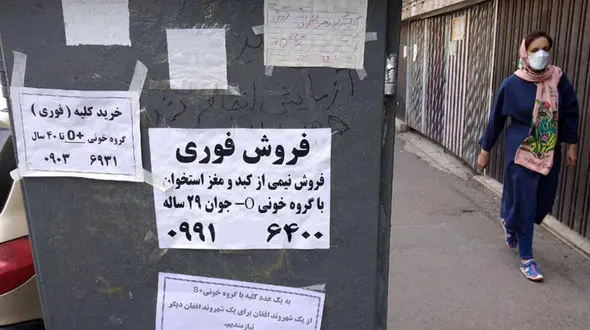 خرید کلیه ( فوری )
گروه خونی +O تا ۴۰ سال
۰۹۰۳ ۶۹۳۱
فروش فوری
فروش نیمی از کبد و مغز استخوان
با گروه خونی O- جوان ۲۹ ساله
۰۹۹۱ ۶۴۰۰
به یک عدد کلیه با گروه خونی +B
از یک شهروند افغان برای یک شهروند افغان دیگر
نیازمندیم.